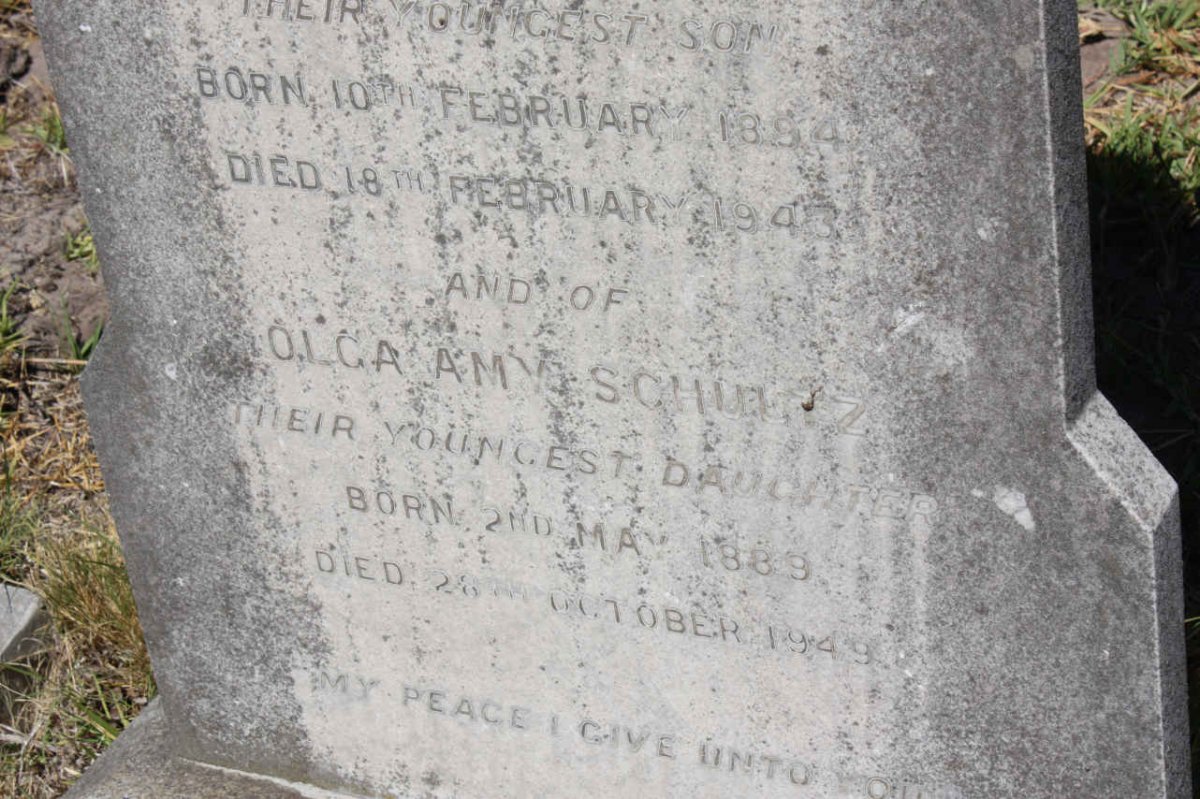 THEIR YOUNGEST SON
BORN 10TH FEBRUARY 1894
DIED 18TH FEBRUARY 1943
AND OF
OLGA AMY SCHULTZ
THEIR YOUNGEST DAUGHTER
BORN 2ND MAY 1889
DIED 28TH OCTOBER 1949
MY PEACE I GIVE UNTO YOU